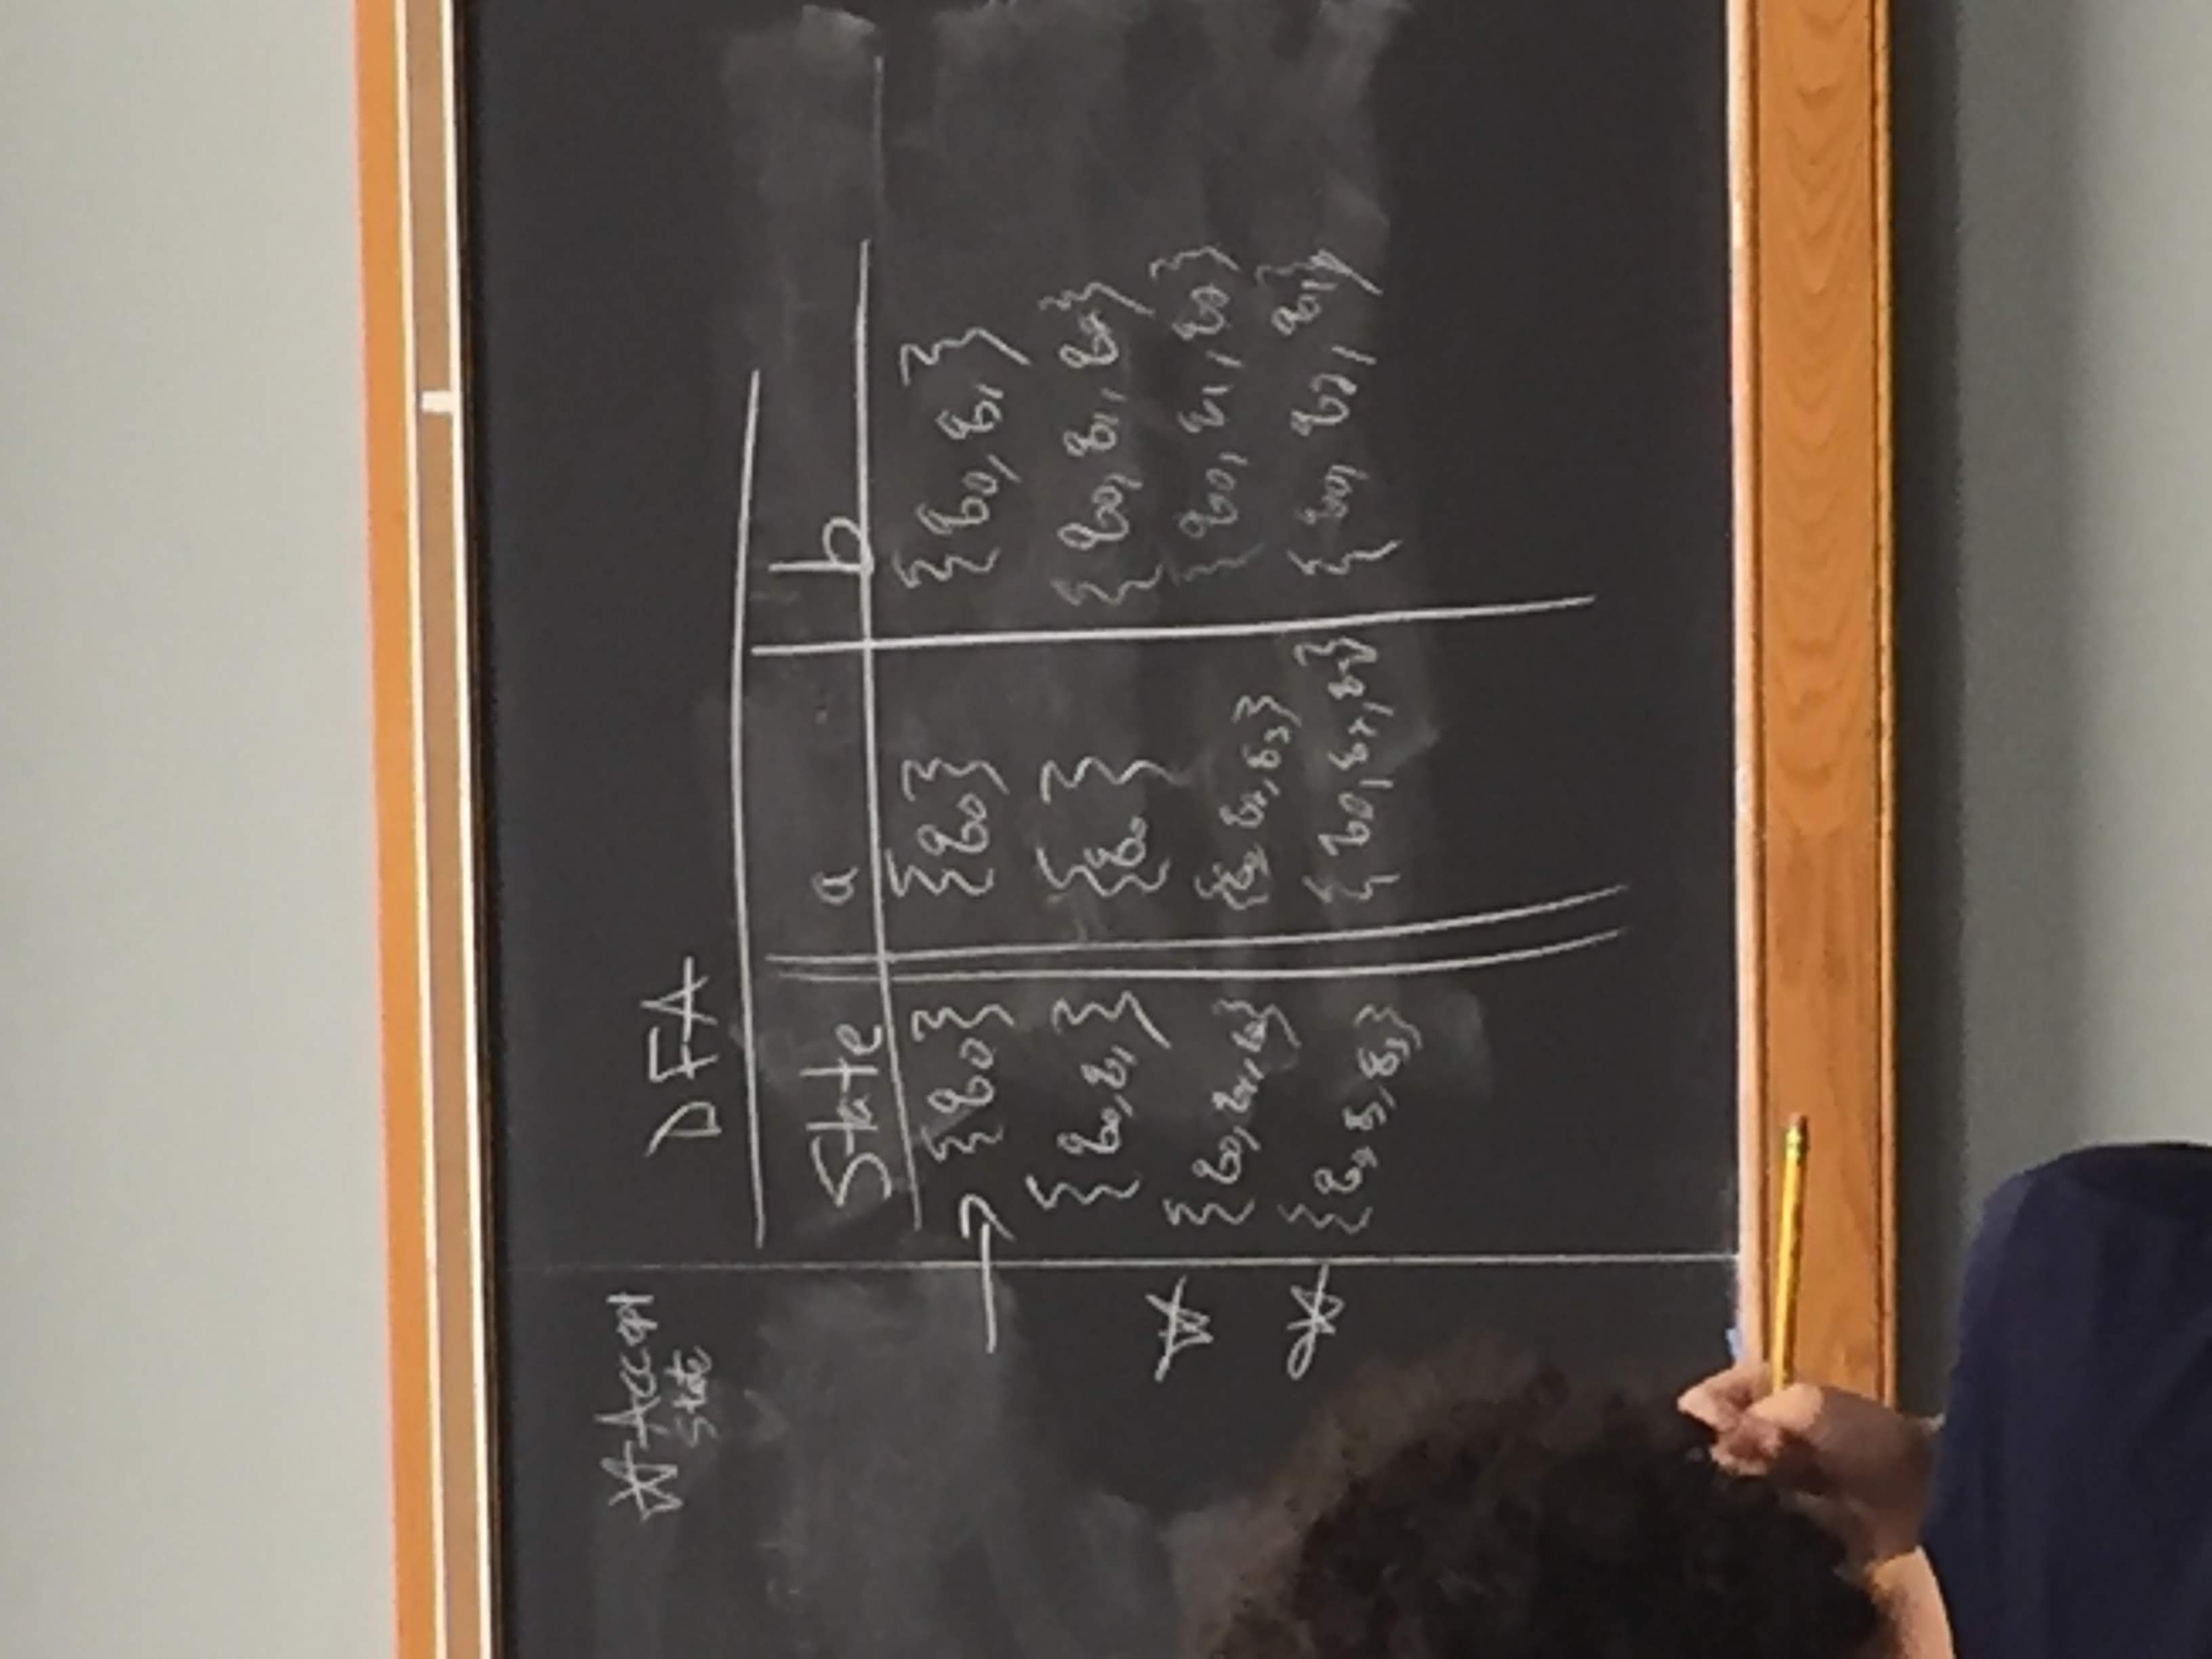 ☆ Accept
State
DFA
State a b
→ {q₀} {q₀} {q₀, q₁}
{q₀, q₁} {q₀} {q₀, q₁, q₂}
☆ {q₀, {q₀, q₂, q₃} {q₀, q₁, q₂}
☆ {q₀, {q₀, q₂, {q₀, q₂, q₁}